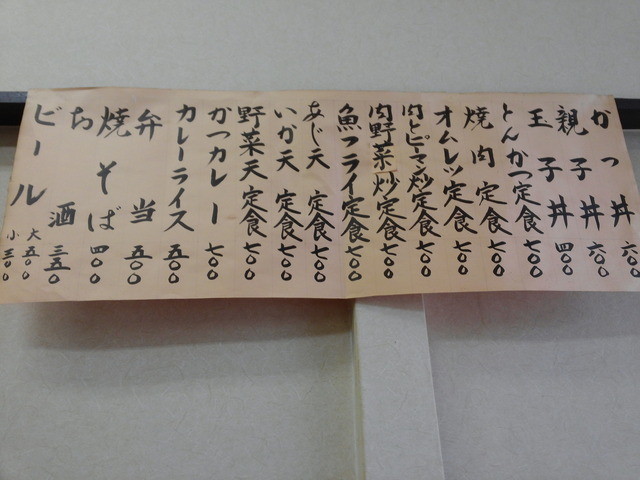 かつ丼 六〇〇
親子丼 六〇〇
玉子丼 四〇〇
とんかつ定食 七〇〇
焼肉定食 七〇〇
オムレツ定食 七〇〇
肉とピーマン炒定食 七〇〇
肉野菜炒定食 七〇〇
魚フライ定食 七〇〇
あじ天定食 七〇〇
いか天定食 七〇〇
野菜天定食 七〇〇
かつカレー 七〇〇
カレーライス 五〇〇
弁当 五〇〇
焼そば 四〇〇
お酒 三五〇
ビール 大 五〇〇
小 三〇〇